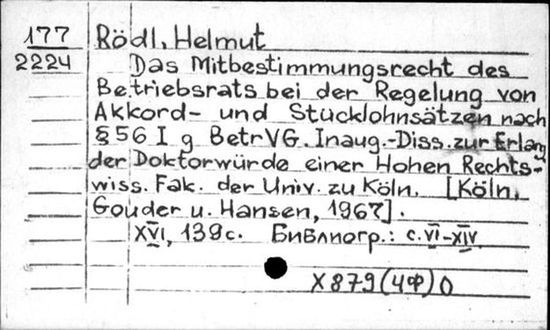 177 Rödl, Helmut
2224 Das Mitbestimmungsrecht des
Betriebsrats bei der Regelung von
Akkord- und Stücklohnsätzen nach
§ 56 I g BetrVG. Inaug.-Diss. zur Erlang
der Doktorwürde einer Hohen Rechts-
wiss. Fak. der Univ. zu Köln. [Köln,
Gouder u. Hansen, 1967].
XVI, 139 с. Библиогр.: с. VI-XIV
X879(4Ф)0